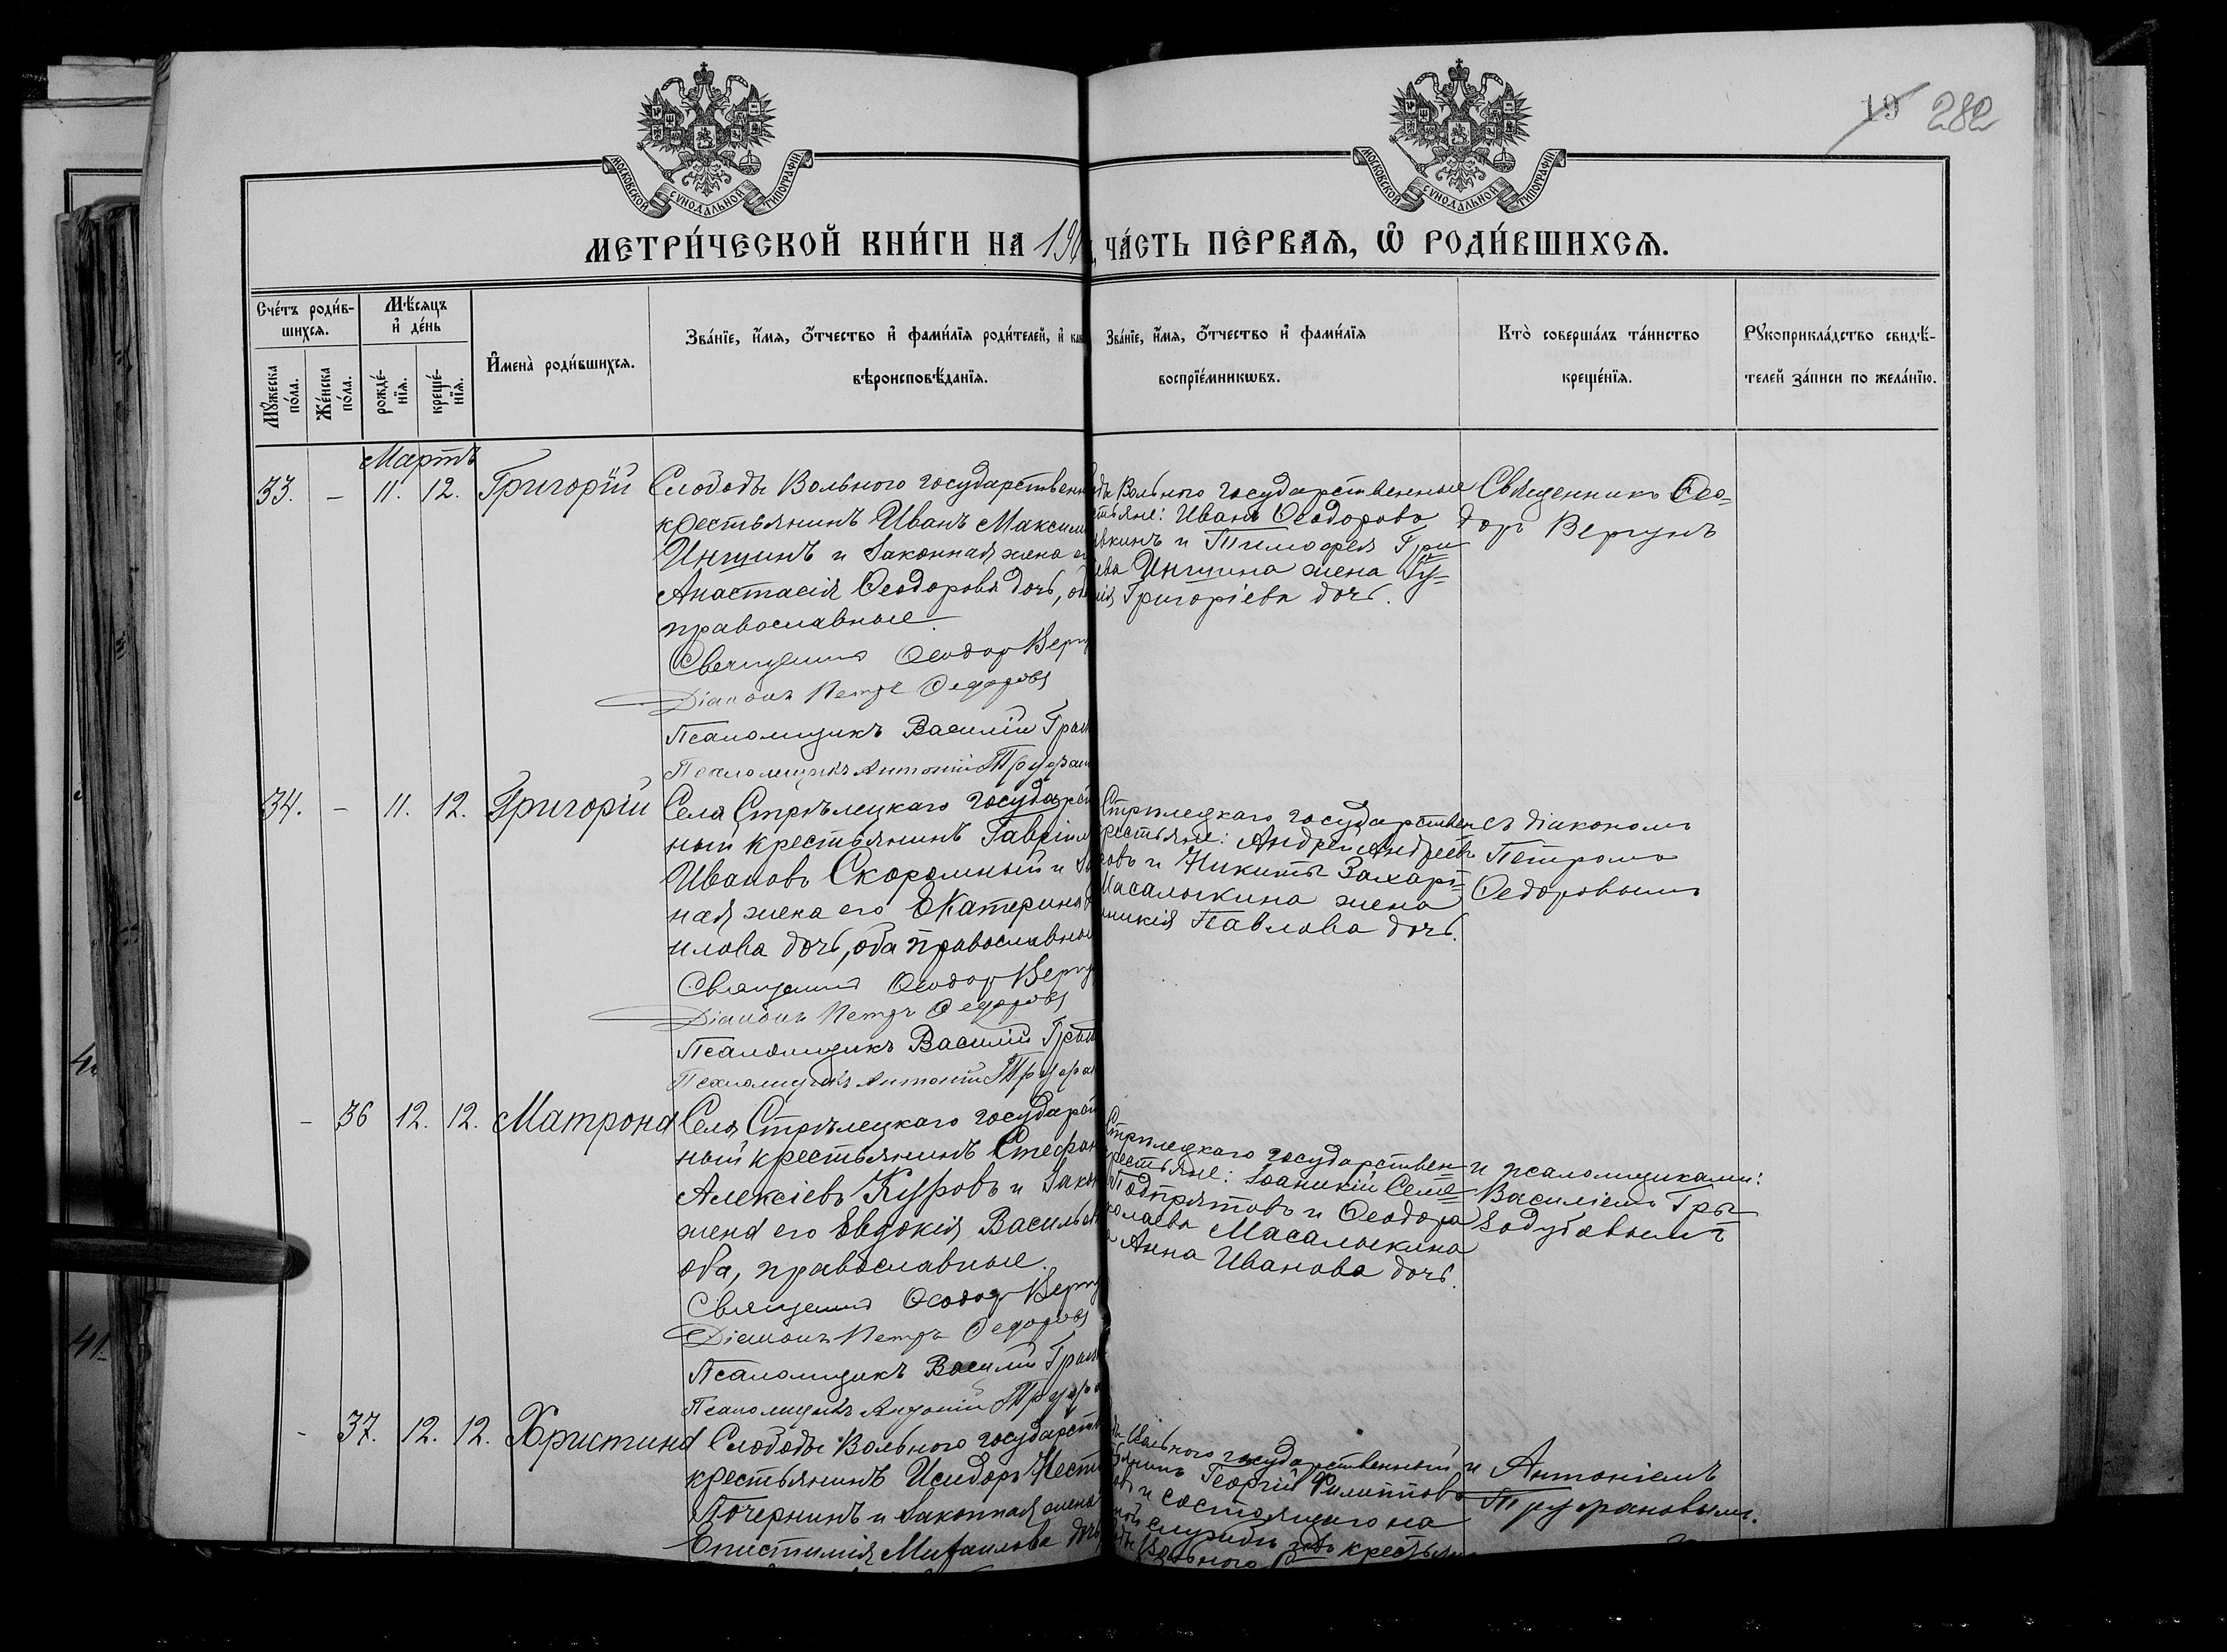 МОСКОВСКОЙ СѴНОДАЛЬНОЙ ТИПОГРАФІИ.
МОСКОВСКОЙ СѴНОДАЛЬНОЙ ТИПОГРАФІИ.
19 282
МЕТРИ́ЧЕСКОЙ КНИ́ГИ НА 190
ЧА́СТЬ ПЕ́РВАѦ, Ѡ҆ РОДИ́ВШИХСѦ.
Сче́тъ роди́в-
шихсѧ.
Мѣ́сѧцъ
и҆ де́нь
Мꙋ́жеска
по́ла.
Же́нска
по́ла.
рожде́-
нїѧ.
креще́-
нїѧ.
И҆мена̀ роди́вшихсѧ.
Зва́нїе, и҆́мѧ, ѻ҆́тчество и҆ фами́лїѧ роди́телей, и҆
вѣроисповѣ́данїѧ.
Зва́нїе, и҆́мѧ, ѻ҆́тчество и҆ фами́лїѧ
воспрїе́мникѡвъ.
Кто̀ соверша́лъ та́инство
креще́нїѧ.
Рꙋкоприкла́дство свидѣ́-
телей за́писи по жела́нїю.
Мартъ
33. – 11. 12. Григорій
Слободы Вольного государствен
крестьянинъ Иванъ Максим
Инщинъ и законная жена
Анастасія Ѳеодорова дочь,
православные.
Священникъ Ѳеодор Верг
Діаконъ Петръ Ѳедоровъ
Псаломщикъ Василій
Псаломщикъ Антоній Труфан
Вольного государственные
Иванъ Ѳеодоровъ
и Тимофея Гри
Инщина жена
Григоріева дочь.
Священникъ Ѳео-
доръ Вергунъ
34. – 11. 12. Григорій
Села Стрѣлецкаго государс
ный крестьянинъ Гавріил
Ивановъ Скоромный и
ная жена его Екатерина
илова дочь, оба православные
Священникъ Ѳеодор Верг
Діаконъ Петръ Ѳедоровъ
Псаломщикъ Василій
Псаломщикъ Антоній Труфан
Стрѣлецкаго государствен
рестьяне: Андрей Андреевъ
ровъ и Никиты Захарі-
Масалыкина жена
Павлова дочь.
съ діакономъ
Петромъ
Ѳедоровымъ
– 36 12. 12. Матрона
Села Стрѣлецкаго государст
ный крестьянинъ Стефан
Алексіевъ Куровъ и закон
жена его Евдокія Василье
оба, православные.
Священникъ Ѳеодор Верг
Діаконъ Петръ Ѳедоровъ
Псаломщикъ Василій
Псаломщикъ Антоній Труфа
Стрѣлецкаго государствен
рестьяне: Іоаникій Семе-
Подпрятовъ и Ѳеодора
колаева Масалыкина
Анна Иванова дочь.
и псаломщиками:
Василіемъ Гры-
зодубовымъ
- 37. 12. 12. Христина
Слободы Вольного государст
крестьянинъ Исидоръ Нест
Почернинъ и законная жена
Епистимія Михаилова дочь
Вольного государственный
Георгій Филипповъ
и состоящаго на
службѣ крестьян
Вольного
и Антоніемъ
Труфановымъ.
40
41.